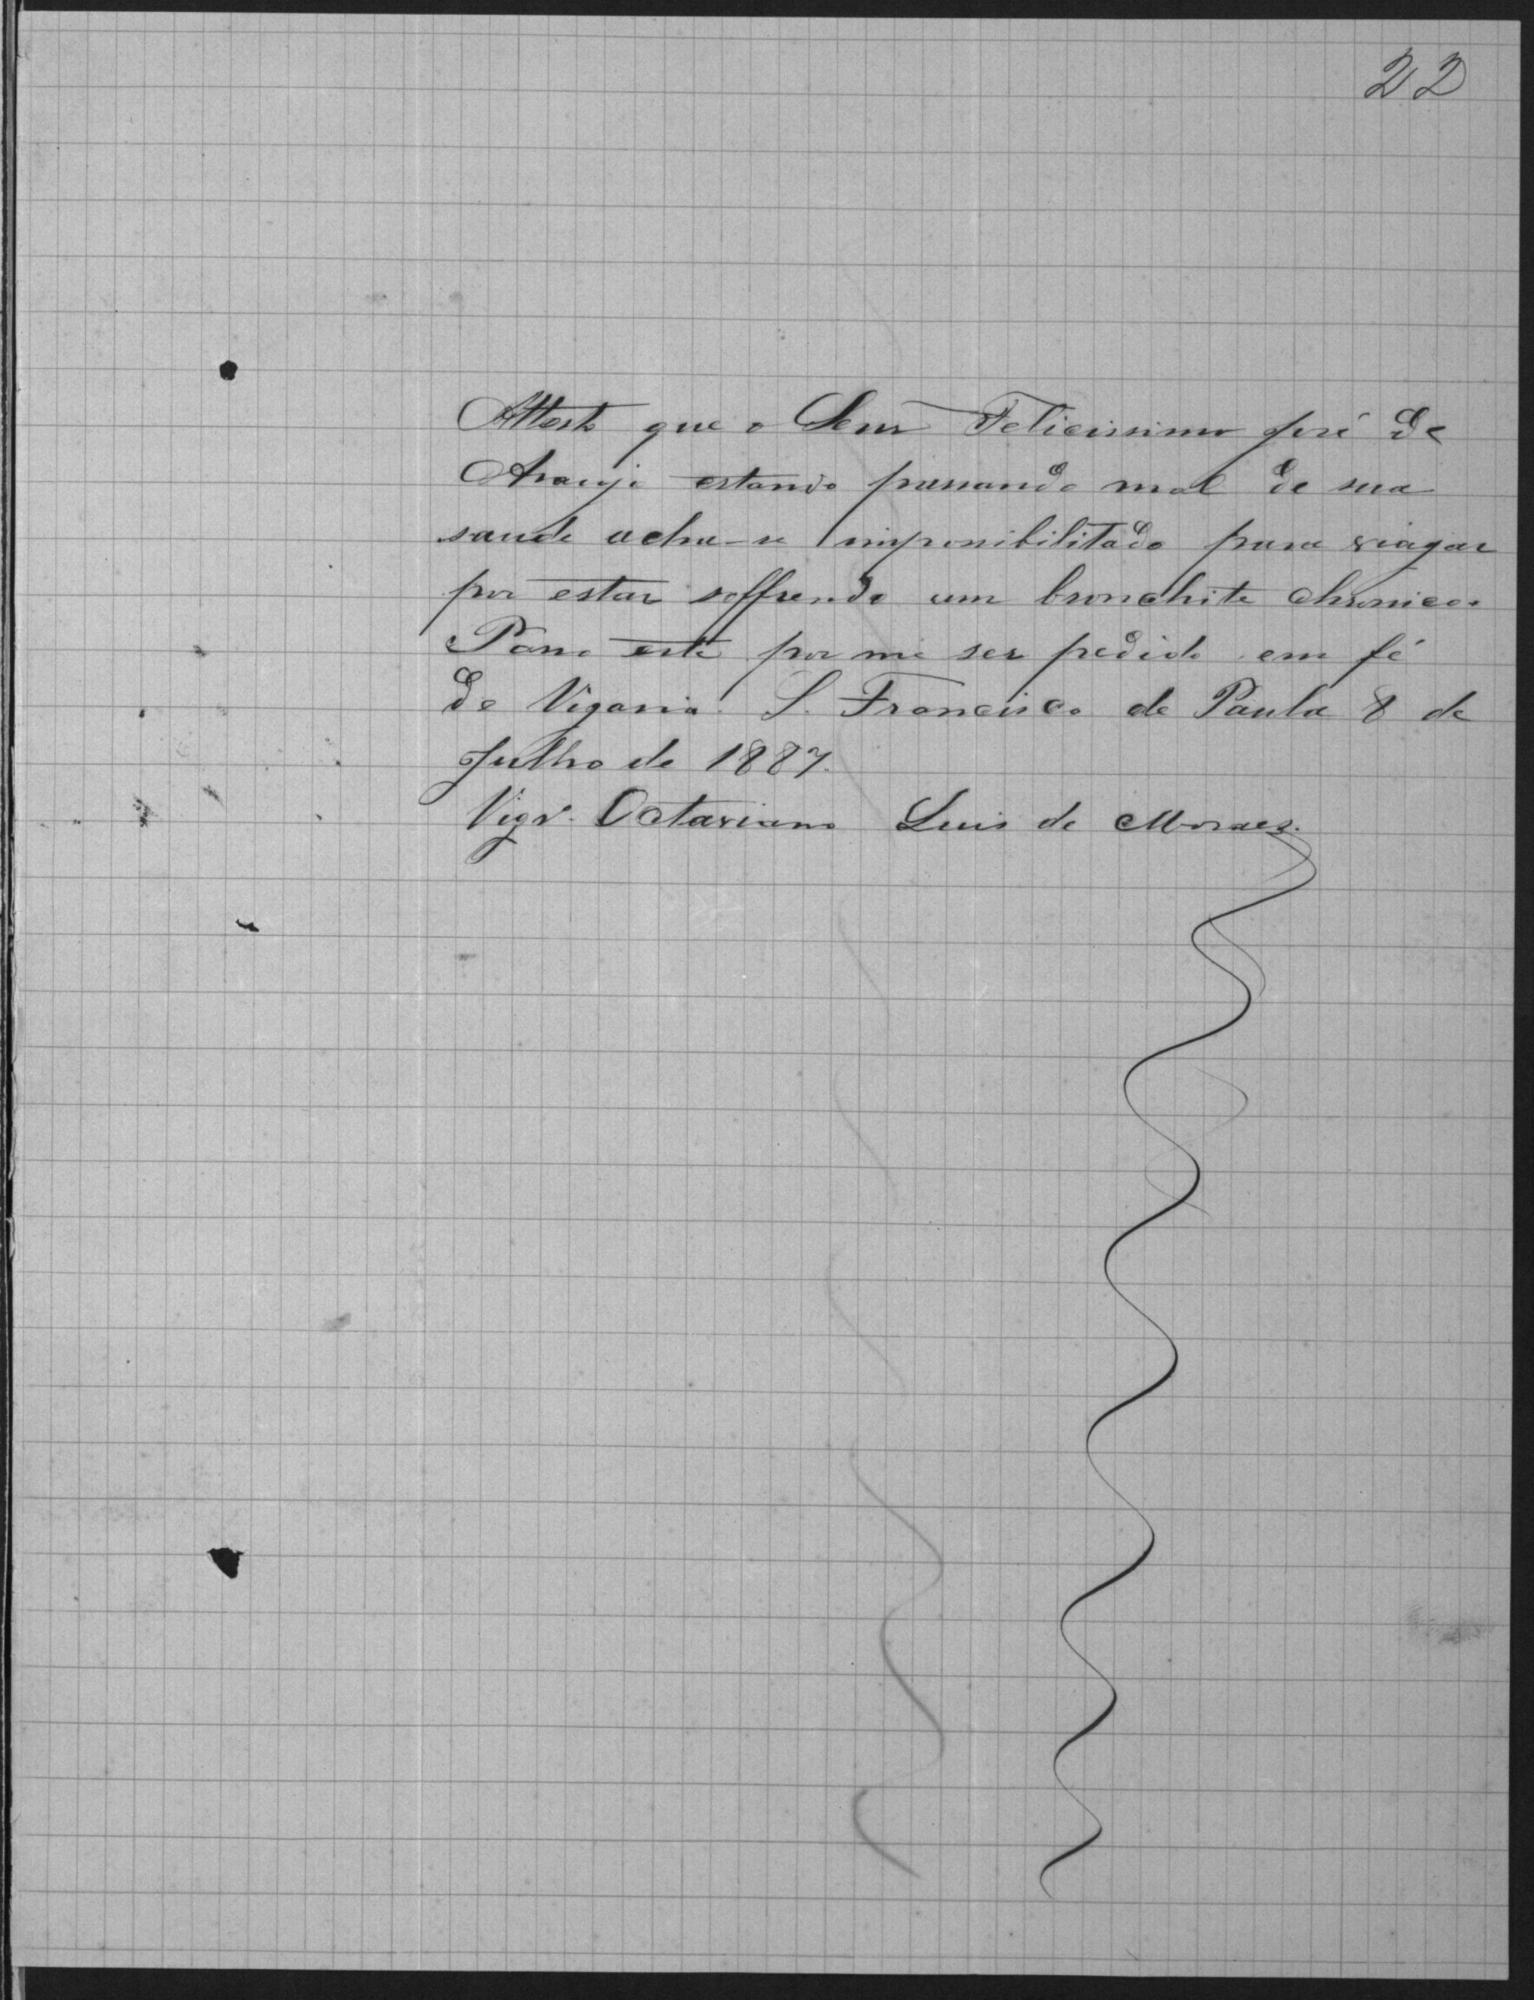 22
Attesto que o Senr Felicissimo José de
Araujo estando passando mal de sua
saude acha-se impossibilitado para viagar
por estar soffrendo um bronchite chronico.
Passo este por me ser pedido em fé
de Vigario. S. Francisco de Paula 8 de
Julho de 1887.
Vigr.º Octaviano Luis de Moraes.